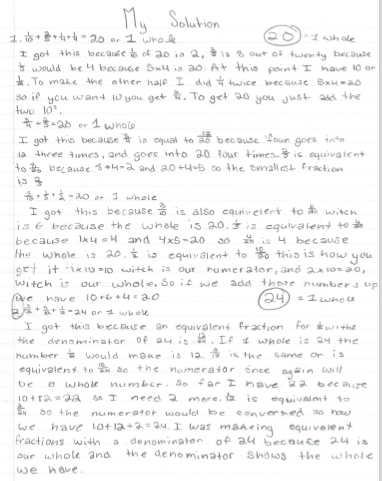 My Solution
1. 1/10 + 2/5 + 1/4 + 1/4 = 20 or 1 whole (20) = 1 whole
I got this because 1/10 of 20 is 2, 2/5 is 8 out of twenty because
1/5 would be 4 because 5x4 is 20. At this point I have 10 or
1/2. To make the other half I did 1/4 twice because 5x4=20
so if you want 10 you get 2/4. To get 20 you just add the
two 10s.
= 20 or 1 whole
I got this because is equal to 12/20 because four goes into
12 three times, and goes into 20 four times. is equivalent
to because 8÷4=2 and 20÷4=5 so the smallest fraction
is
3/10 + 1/5 + 1/2 = 20 or 1 whole
I got this because 3/10 is also equivelent to 6/20 witch
is 6 because the whole is 20. 1/5 is equivalent to 4/20
because 1x4=4 and 4x5=20 so 4/20 is 4 because
the whole is 20. 1/2 is equivelent to 10/20 this is how you
get it 1x10=10 witch is our numerator, and 2x10=20,
witch is our whole. So if we add those numbers up
we have 10+6+4=20 (24) = 1 whole
= 24 or 1 whole
I got this because an equivalent fraction for 1/2 withe
the denominator of 24 is 12/24. If 1 whole is 24 the
number would make is 12. is the same or is
equivalent to 10/24 so the numerator once again will
be a whole number. So far I have 22 because
10+12=22 so I need 2 more. 1/12 is equivalent to
2/24 so the numerator would be converted so now
we have 10+12+2=24. I was making equivalent
fractions with a denominator of 24 because 24 is
our whole and the denominator shows the whole
we have.